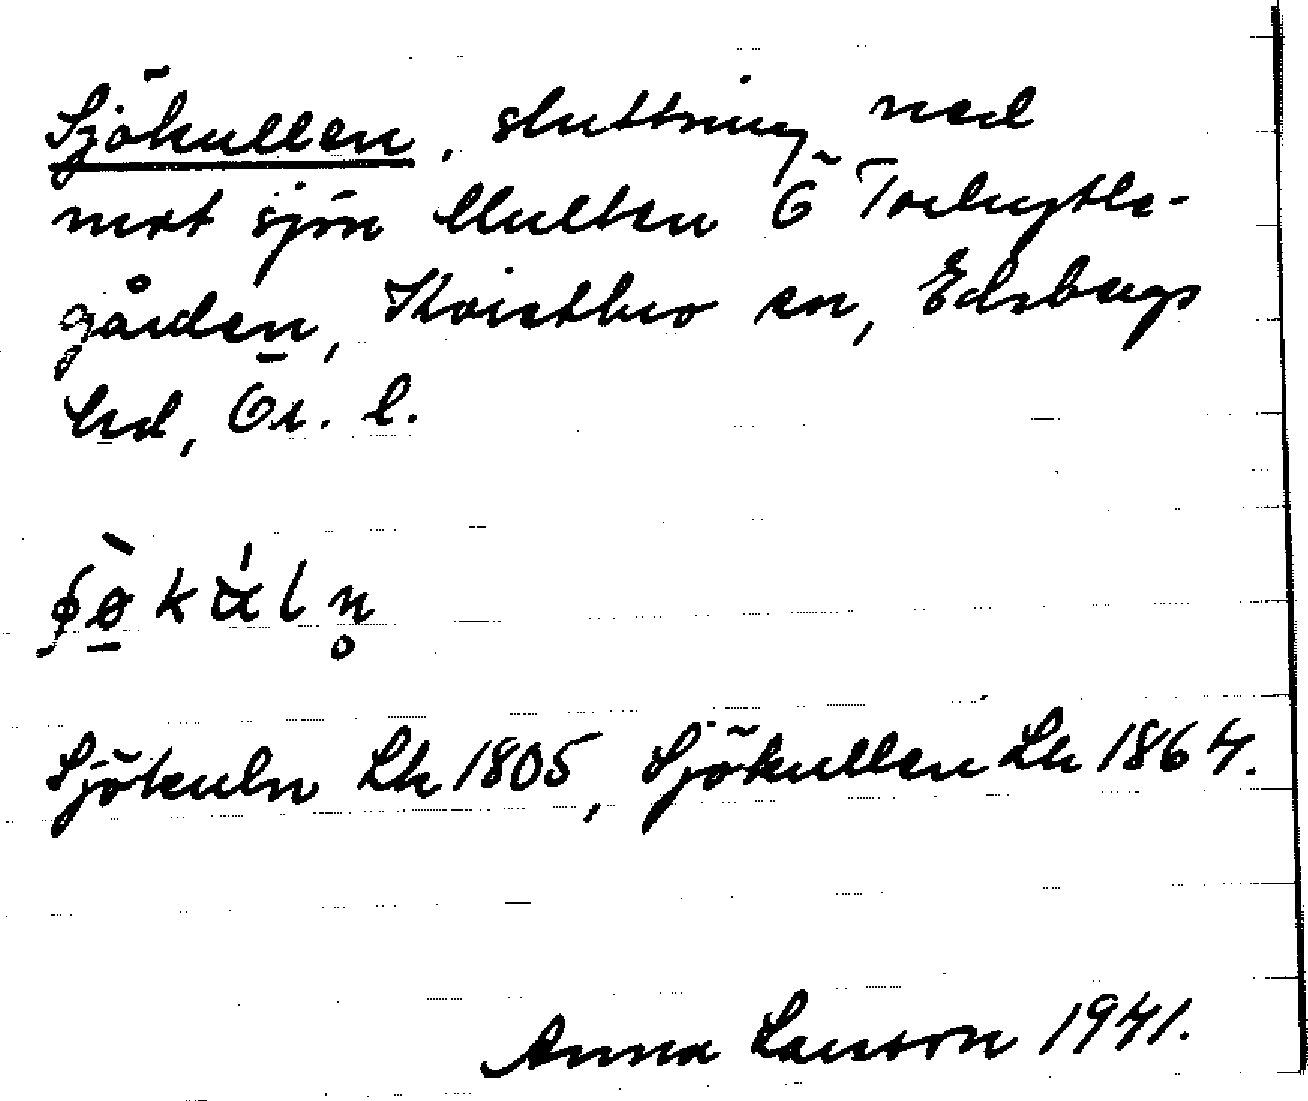 Sjökullen, sluttning ned
mot sjön Multen Ö Torbytle-
gården, Kvistbro sn, Edsbergs
hd, Ör. l.
Sjökuln Lk 1805, Sjökullen Lk 1864.
Anna Larsson 1941.